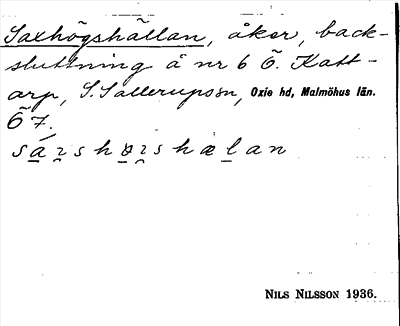 Saxhögshällan, åker, back-
sluttning å nr 6 Ö. Katt-
arp, S. Sallerup sn, Oxie hd, Malmöhus län.
Ö 7.
NILS NILSSON 1936.